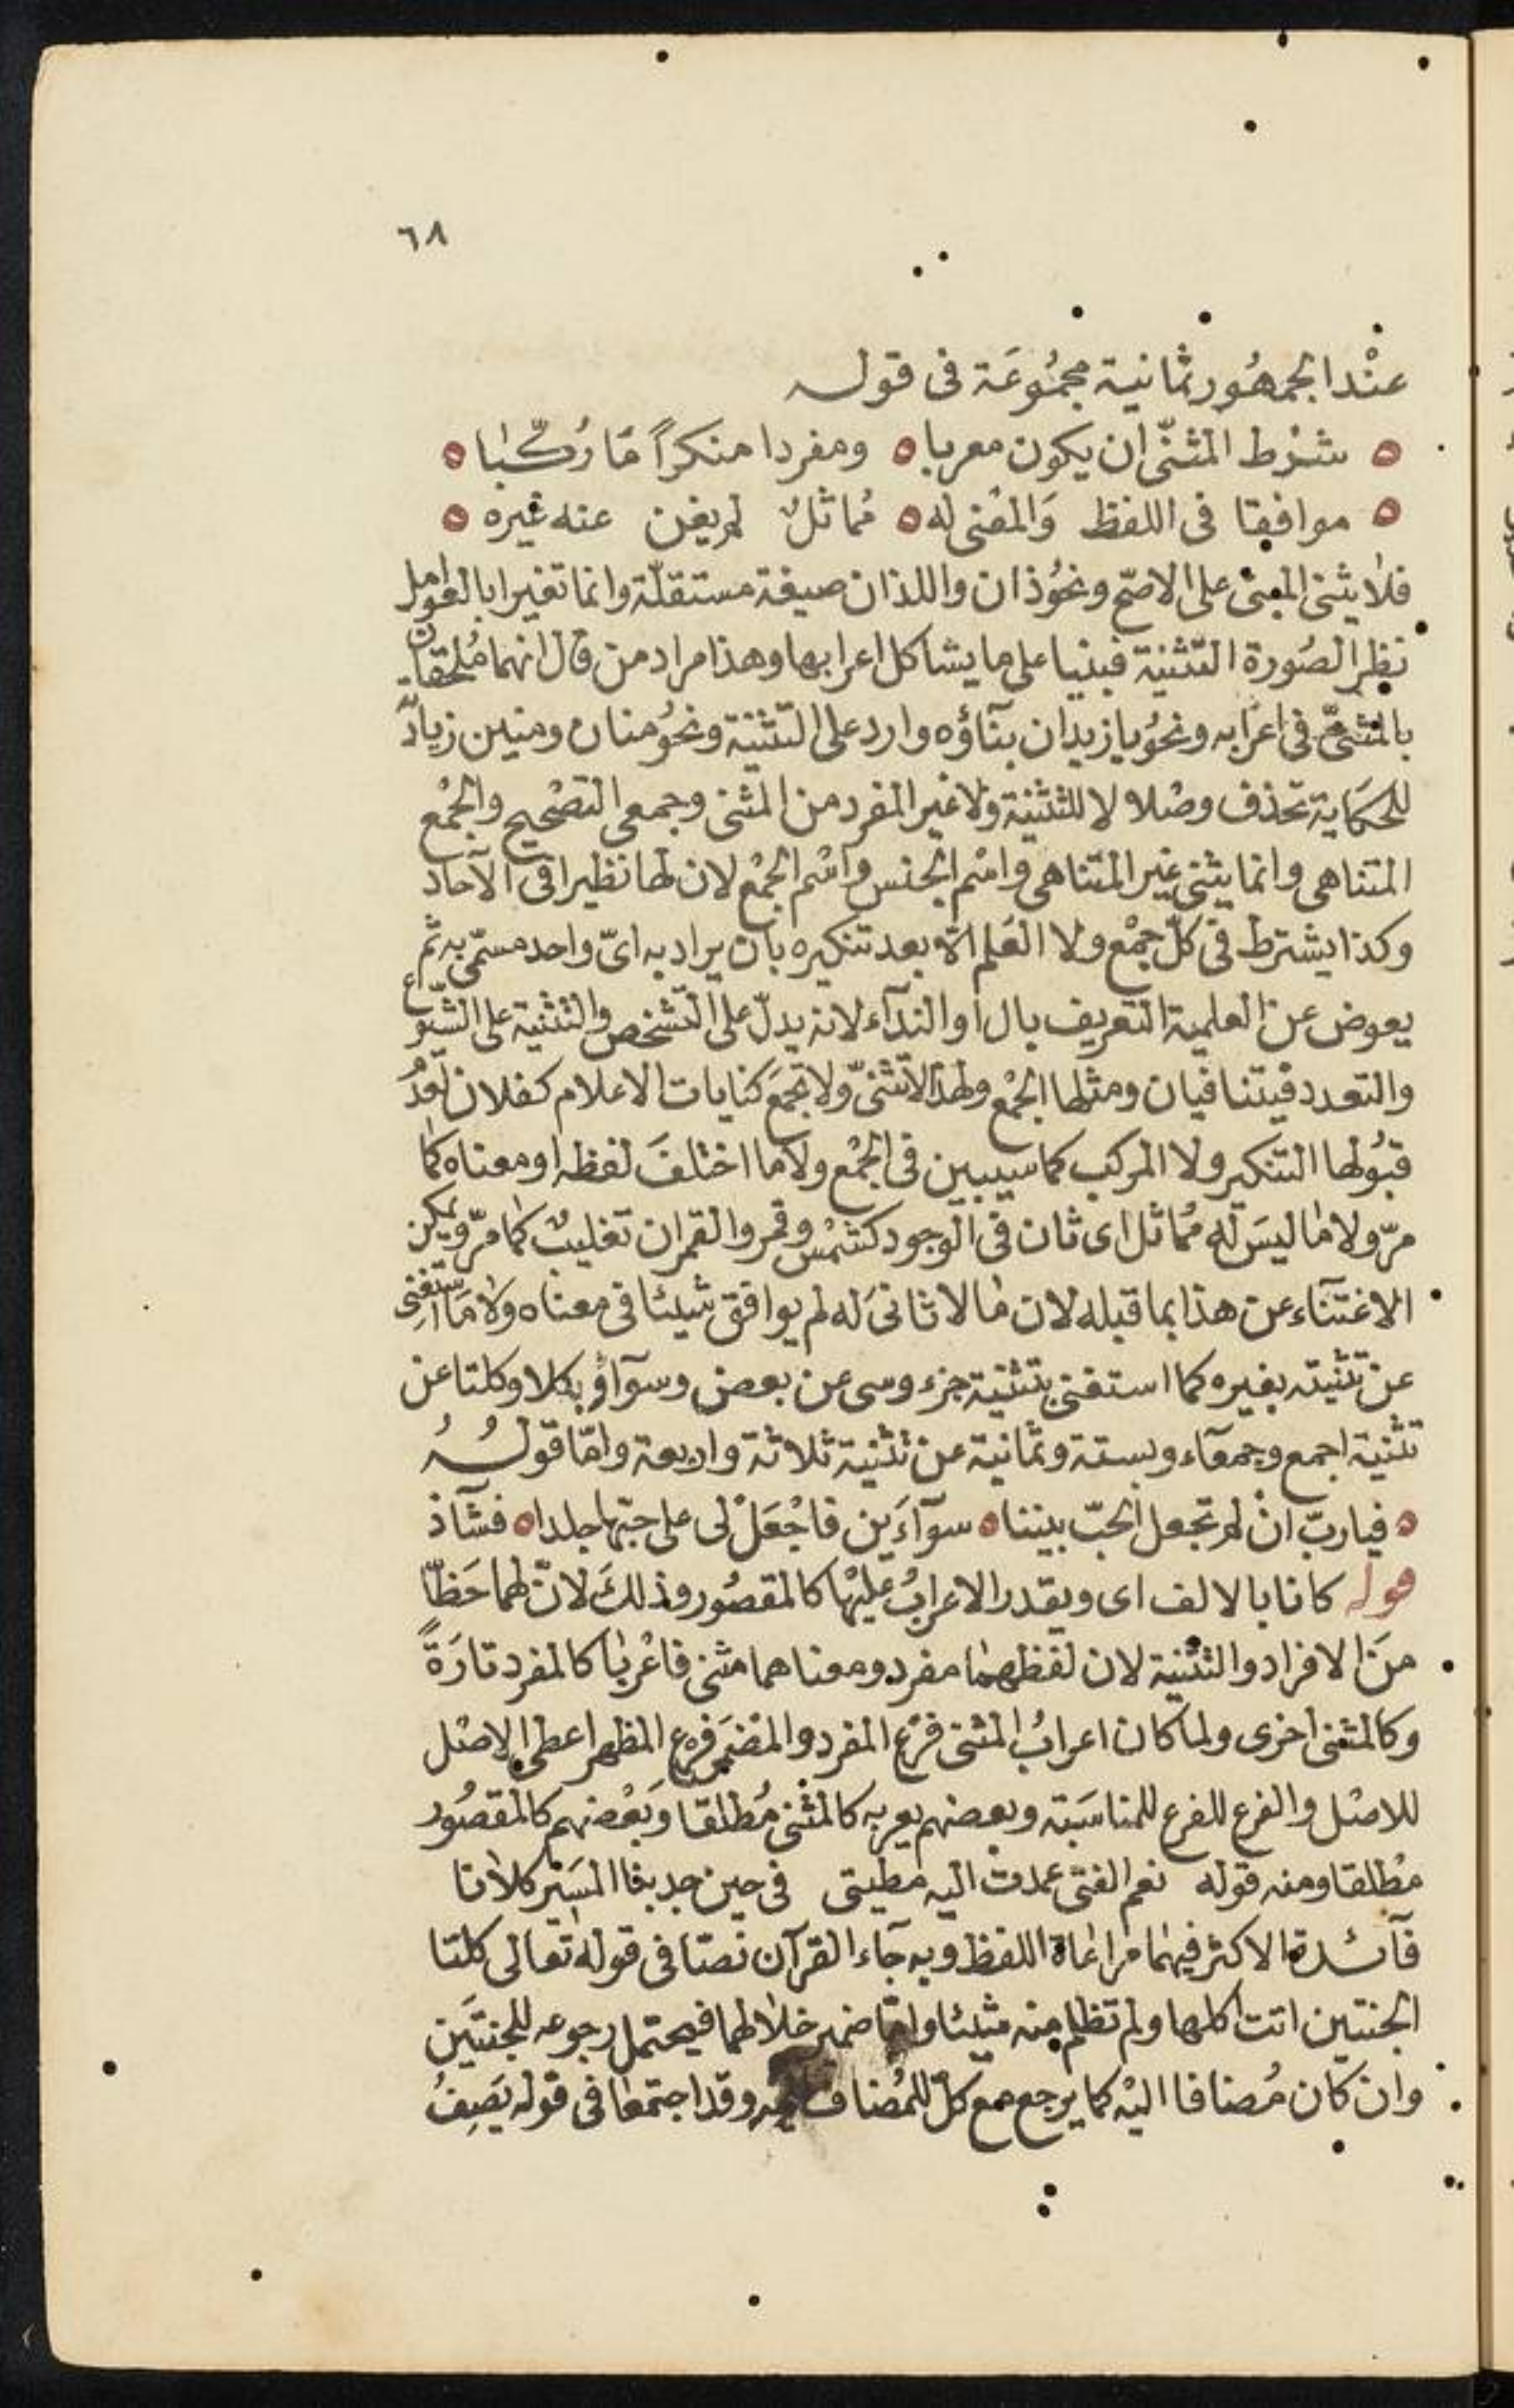 ٦٨
عنْد الجمهُور ثمانية مجمُوعَة فى قوله
شرْط المثنّى ان يكون معربا ومفردا منكراً مَا رُكّبا
موافقا فى اللفظ وَالمعْنى له مُماثلٌ لم يغن عنه غيره
فلا يثنى المبنى على الاصّح ونحوُ ذان واللذان صيغة مستقلّة وانما تغيرا بالعوامل
نظر الصُورة التّثنية فبنيا على ما يشاكل اعرابها وهذا مراد من قال انهما مُلحقان
بالمثنىّ فى اعرَابه ونحوُ يا زيدان بنآؤه وارد على التّثنية ونحوُ منان ومنين زيادٌ
للحكَاية تحذف وصْلا لا للتثنية ولا غير المفرد من المثنى وجمعى التصْحيح والجمْع
المتناهى وانما يثنى غير المتناهى واسْم الجنس واسْم الجمْع لان لها نظيرا فى الآحاد
وكذا يشترط فى كلّ جمْع ولا العَلم الا بعد تنكيره بان يراد به اىّ واحد مسمّى به ثم
يعوض عن العلمية التعريف بال او الندآء لانه يدلّ على التّشخص والتثنية على الشيوع
والتعدد فيتنافيان ومثلها الجمْع ولهذا لا تثنىّ ولا تجمَع كنايات الاعلام كفلان لعدُم
قبُولها التنكير ولا المركب كما سيبين فى الجمْع ولا ما اختلفَ لفظه او معناه كما
مرّ ولا ما ليسَ له مُماثل اى ثان فى الوجود كشمْس وقمر والقمران تغليبٌ كما مرّ ويمكن
الاغتنآء عن هذا بما قبله لان ما لا ثانى له لم يوافق شيئا فى معناه ولا مَا استغنى
عن تثنيته بغيره كما استغنى بتثنية جزء وسى عن بعض وسوآء وبكلا وكلتا عن
تثنية اجمع وجمعآء وبستة وثمانية عن تثنية ثلاثة واربعة وامّا قولُهُ
فياربّ انْ لم تجعل الحبّ بيننا سوآءَين فاجْعَلْ لى على حبّها جلدا فشآذ
قوله كانا بالالف اى ويقدر الاعرابُ عليْها كالمقصُور وذلكَ لانّ لهما حَظّا
منَ الافراد والتثنية لان لفظهما مفرد ومعناهما مثنى فاعْربَا كالمفرد تارَةً
وكالمثنى اخرى ولما كان اعرابُ المثنى فرْع المفرد والمضمَر فرع المظهر اعطى الاصْل
للاصْل والفرع للفرع للمناسَبَة وبعضهم يعربه كالمثنى مُطلقا وبَعْضهم كالمقصُور
مُطلقا ومنه قوله نعم الفتى عمدتْ اليه مطيتى فى حين جد بنا المسَير كلانا
فآئدة الاكثر فيهما مراعَاة اللفظ وبه جآء القرآن نصّا فى قوله تعالى كلتا
الجنتين اتت اكلها ولم تظلم منه شيئا وامّا ضمير خلالهما فيحتمل رجوعه للجنتَين
وان كان مُضافا اليْه كما يرجع مع كلّ للمُضاف اليه وقد اجتمعا فى قوله يَصِفُ